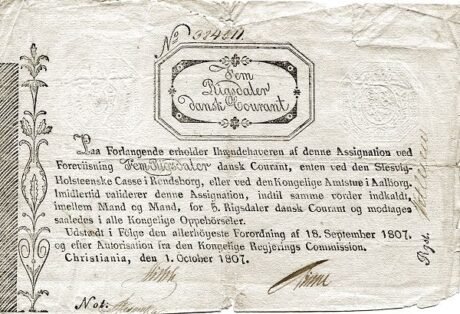 No
Fem
Rigsdaler
dansk Courant
Paa Forlangende erholder Ihændehaveren af denne Assignation ved
Foreviisning Fem Rigsdaler dansk Courant, enten ved den Slesvig-
Holsteenske Casse i Rendsborg, eller ved den Kongelige Amtstue i Aalborg.
Imidlertid validerer denne Assignation, indtil samme vorder indkaldt,
imellem Mand og Mand, for 5. Rigsdaler dansk Courant og modtages
saaledes i alle Kongelige Oppebörseler.
Udstædt i Fölge den allerhöieste Forordning af 18. September 1807.
og efter Autorisation fra den Kongelige Regjerings Commission.
Christiania, den 1. October 1807.
Not: